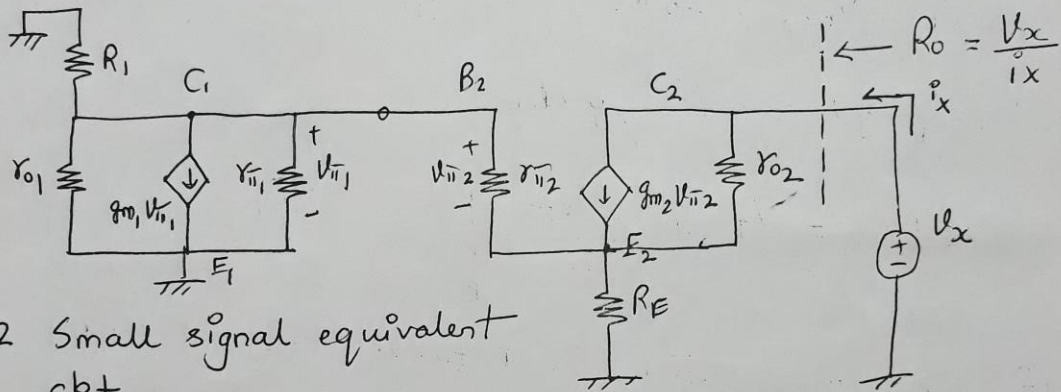 R₁
C₁
B₂
C₂
R₀ = Vx / ix
ix
r₀₁
gm₁Vπ₁
rπ₁
+
Vπ₁
-
+
Vπ₂
-
rπ₂
gm₂Vπ₂
r₀₂
Vx
+
-
E₁
E₂
RE
2 Small signal equivalent
ckt